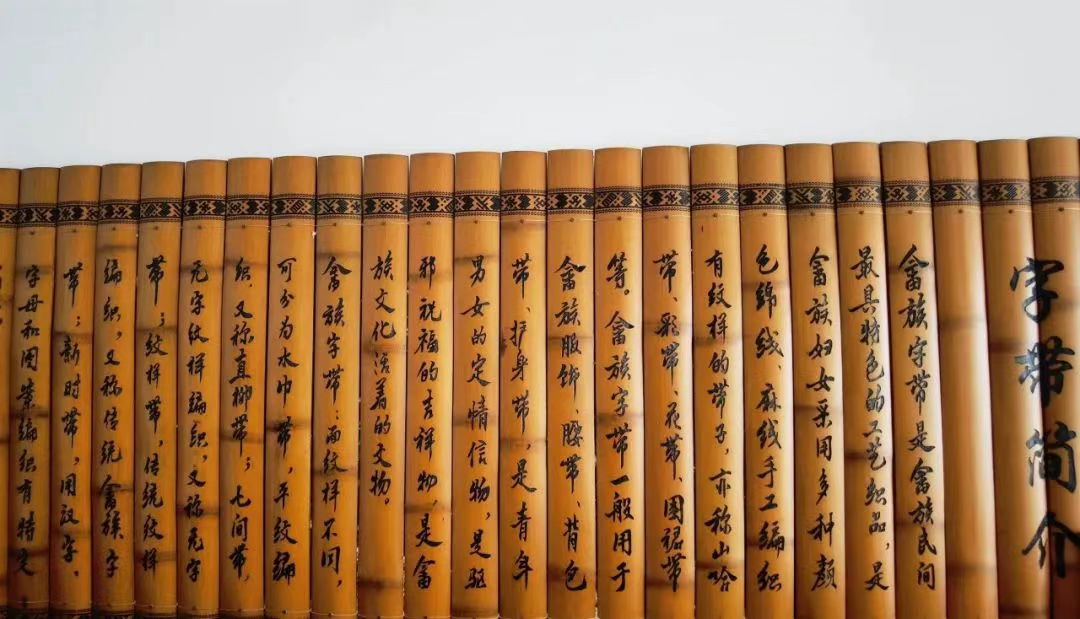 字带简介
畲族字带是畲族民间
最具特色的工艺织品,是
畲族妇女采用多种颜
色绵线、麻线手工编织
有纹样的带子,亦称山哈
带、彩带、花带、围裙带
等。畲族字带一般用于
畲族服饰、腰带、背包
带、护身带,是青年
男女的定情信物,是驱
邪祝福的吉祥物,是畲
族文化活着的文物。
畲族字带:面纹样不同,
可分为水巾带,平纹编
织,又称真柳带;七间带,
无字纹样编织,又称无字
带;纹样带,传统纹样
编织,又称传统畲族字
带;新时带,用汉字,
字母和图案编织有特定